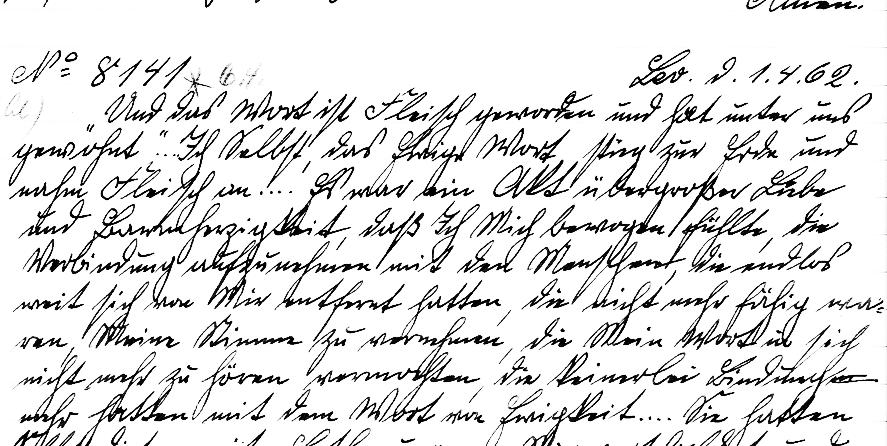 Amen.
No 8141 Lev. d. 1.4.62.
„Und das Wort ist Fleisch geworden und hat unter uns
gewohnt“... Ich Selbst, das Ewige Wort, stieg zur Erde und
nahm Fleisch an.... Es war ein Akt übergroßer Liebe
und Barmherzigkeit, daß Ich Mich bewogen fühlte, die
Verbindung aufzunehmen mit den Menschen, die endlos
weit sich von Mir entfernt hatten, die nicht mehr fähig wa-
ren, Meine Stimme zu vernehmen, die Mein Wort in sich
nicht mehr zu hören vermochten, die keinerlei Bindung
mehr hatten mit dem Wort von Ewigkeit.... Sie hatten